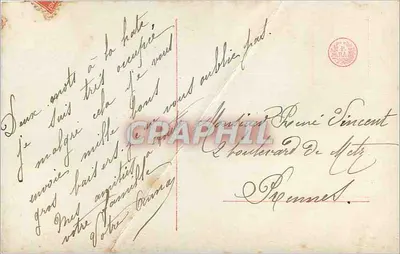 Deux mots à la hate
je suis très occupé
malgre cela je vous
envoie mille bons
gros baisers. je ne vous oublie pas.
Mes amitiés à
votre famille
Votre
Monsieur René Vincent
2 boulevard de Metz
Rennes.
CPAPHIL